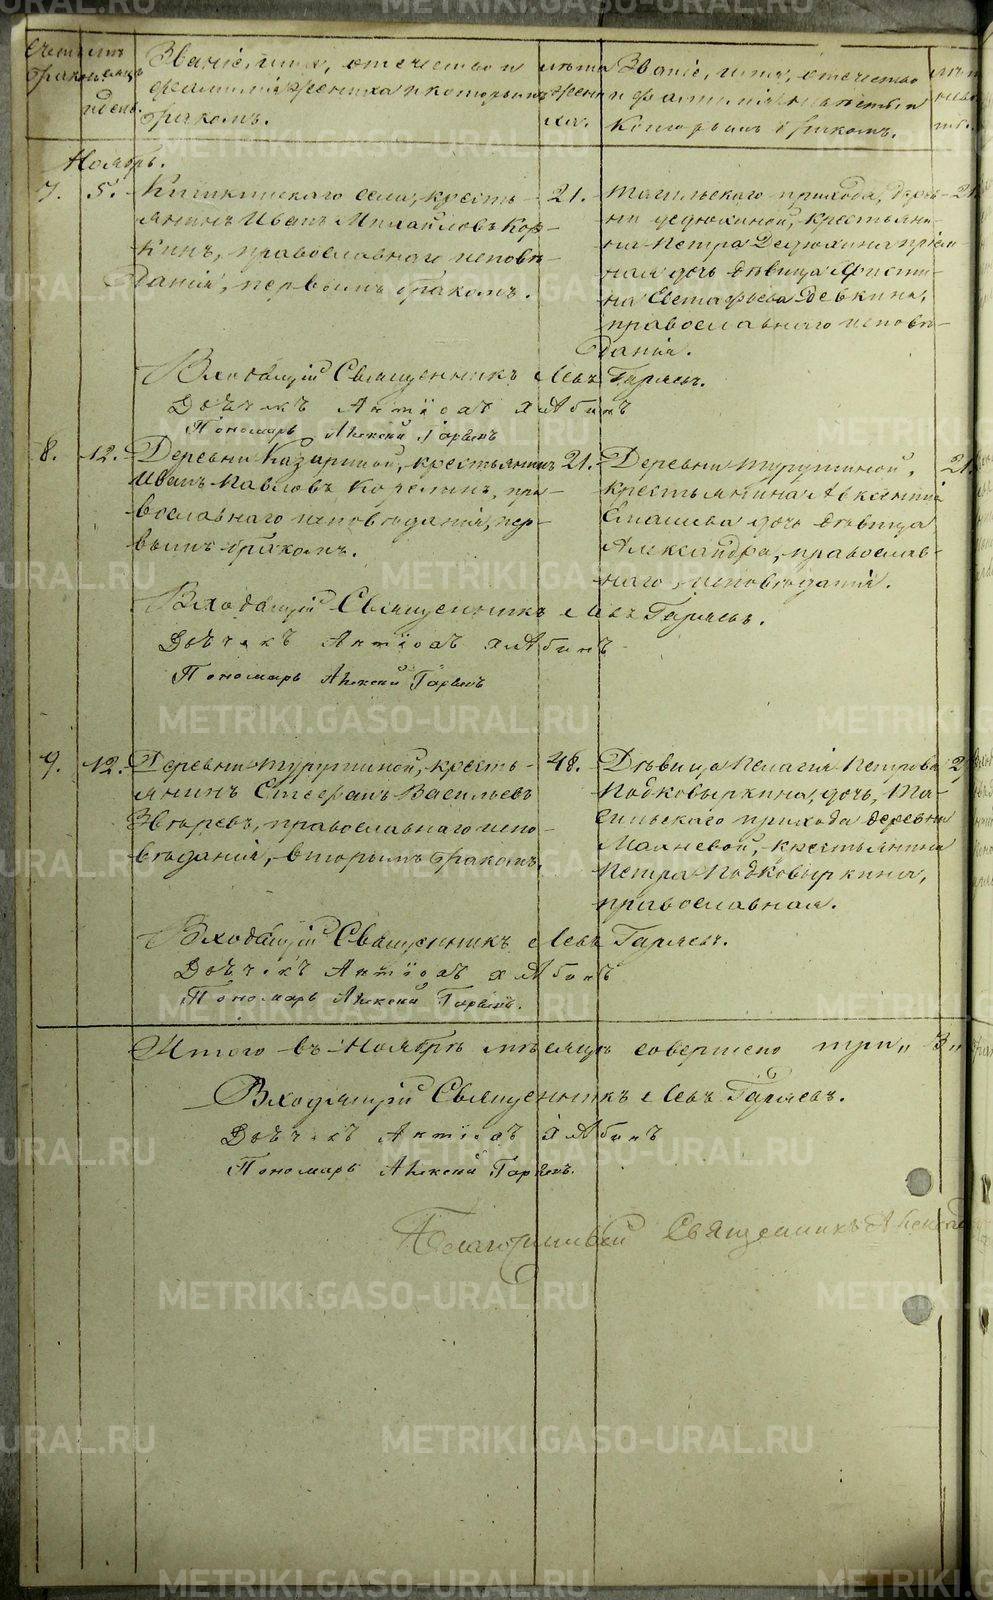 Счетъ браковъ
Мѣсяцъ и день.
Званіе, имя, отечество и фамилія жениха и которымъ бракомъ.
Лѣта жениха.
Званіе, имя, отечество и фамилія невѣсты и которымъ бракомъ.
Лѣта невѣсты.
Ноябрь.
7. 5.
Кишкинскаго села, кресть-
янинъ Иванъ Михайловъ Кор-
кинъ, православнаго исповѣ-
данія, первымъ бракомъ.
21.
Тагильскаго прихода, дерев-
ни Дедюхиной, крестьяни-
на Петра Дедюхина пріем-
ная дочь дѣвица Фисти-
на Евстафьева Девкина,
православнаго исповѣ-
данія.
21
Входящій Священникъ Левъ Гаряевъ.
Дьячекъ Антіохъ Хлѣбинъ
Пономарь Алексій Гаряевъ
8. 12.
Деревни Казариной, крестьянинъ
Иванъ Павловъ Корелинъ, пра-
вославнаго исповѣданія, пер-
вымъ бракомъ.
21.
Деревни Турутиной,
крестьянина Авксентія
дочь дѣвица
Александра, православ-
наго исповѣданія.
21
Входящій Священникъ Левъ Гаряевъ.
Дьячекъ Антіохъ Хлѣбинъ
Пономарь Алексій Гаряевъ
9. 12.
Деревни Турутиной, кресть-
янинъ Стефанъ Васильевъ
Звѣревъ, православнаго испо-
вѣданія, вторымъ бракомъ.
48.
Дѣвица Пелагія Петрова
Подковыркина, дочь, Та-
гильскаго прихода деревни
Махневой, крестьянина
Петра Подковыркина,
православная.
2
Входящій Священникъ Левъ Гаряевъ.
Дьячекъ Антіохъ Хлѣбинъ
Пономарь Алексій Гаряевъ.
Итого въ Ноябрѣ мѣсяцѣ совершено три „3„
Входящій Священникъ Левъ Гаряевъ.
Дьячекъ Антіохъ Хлѣбинъ
Пономарь Алексій Гаряевъ.
Благочинный Священникъ
METRIKI.GASO-URAL.RU